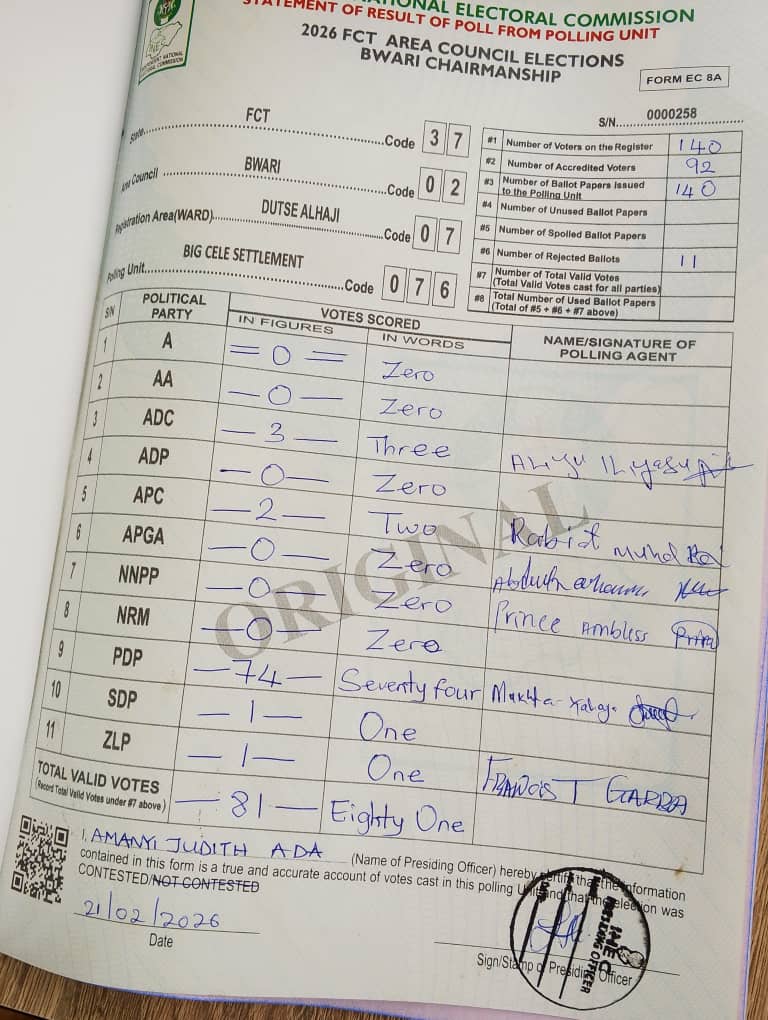 NATIONAL ELECTORAL COMMISSION
STATEMENT OF RESULT OF POLL FROM POLLING UNIT
2026 FCT AREA COUNCIL ELECTIONS
BWARI CHAIRMANSHIP
FORM EC 8A
INEC
INDEPENDENT NATIONAL ELECTORAL COMMISSION
S/N. 0000258
State FCT Code 3 7
Area Council BWARI Code 0 2
Registration Area(WARD) DUTSE ALHAJI Code 0 7
Polling Unit BIG CELE SETTLEMENT Code 0 7 6
#1 Number of Voters on the Register 140
#2 Number of Accredited Voters 92
#3 Number of Ballot Papers Issued to the Polling Unit 140
#4 Number of Unused Ballot Papers
#5 Number of Spoiled Ballot Papers
#6 Number of Rejected Ballots 11
#7 Number of Total Valid Votes (Total Valid Votes cast for all parties)
#8 Total Number of Used Ballot Papers (Total of #5 + #6 + #7 above)
S/N POLITICAL PARTY VOTES SCORED IN FIGURES IN WORDS NAME/SIGNATURE OF POLLING AGENT
1 A =0= Zero
2 AA -0- Zero
3 ADC -3- Three Aliyu Iliyasu
4 ADP -0- Zero
5 APC -2- Two Rabiat Muhd
6 APGA -0- Zero
7 NNPP -0- Zero Prince Ambless
8 NRM -0- Zero
9 PDP -74- Seventy four
10 SDP -1- One
11 ZLP -1- One
TOTAL VALID VOTES (Record Total Valid Votes under #7 above) -81- Eighty One
ORIGINAL
I, AMANYI JUDITH ADA (Name of Presiding Officer) hereby certify that the information
contained in this form is a true and accurate account of votes cast in this polling Unit and that the election was
CONTESTED/NOT CONTESTED
21/02/2026
Date
Sign/Stamp of Presiding Officer
INEC
PRESIDING OFFICER